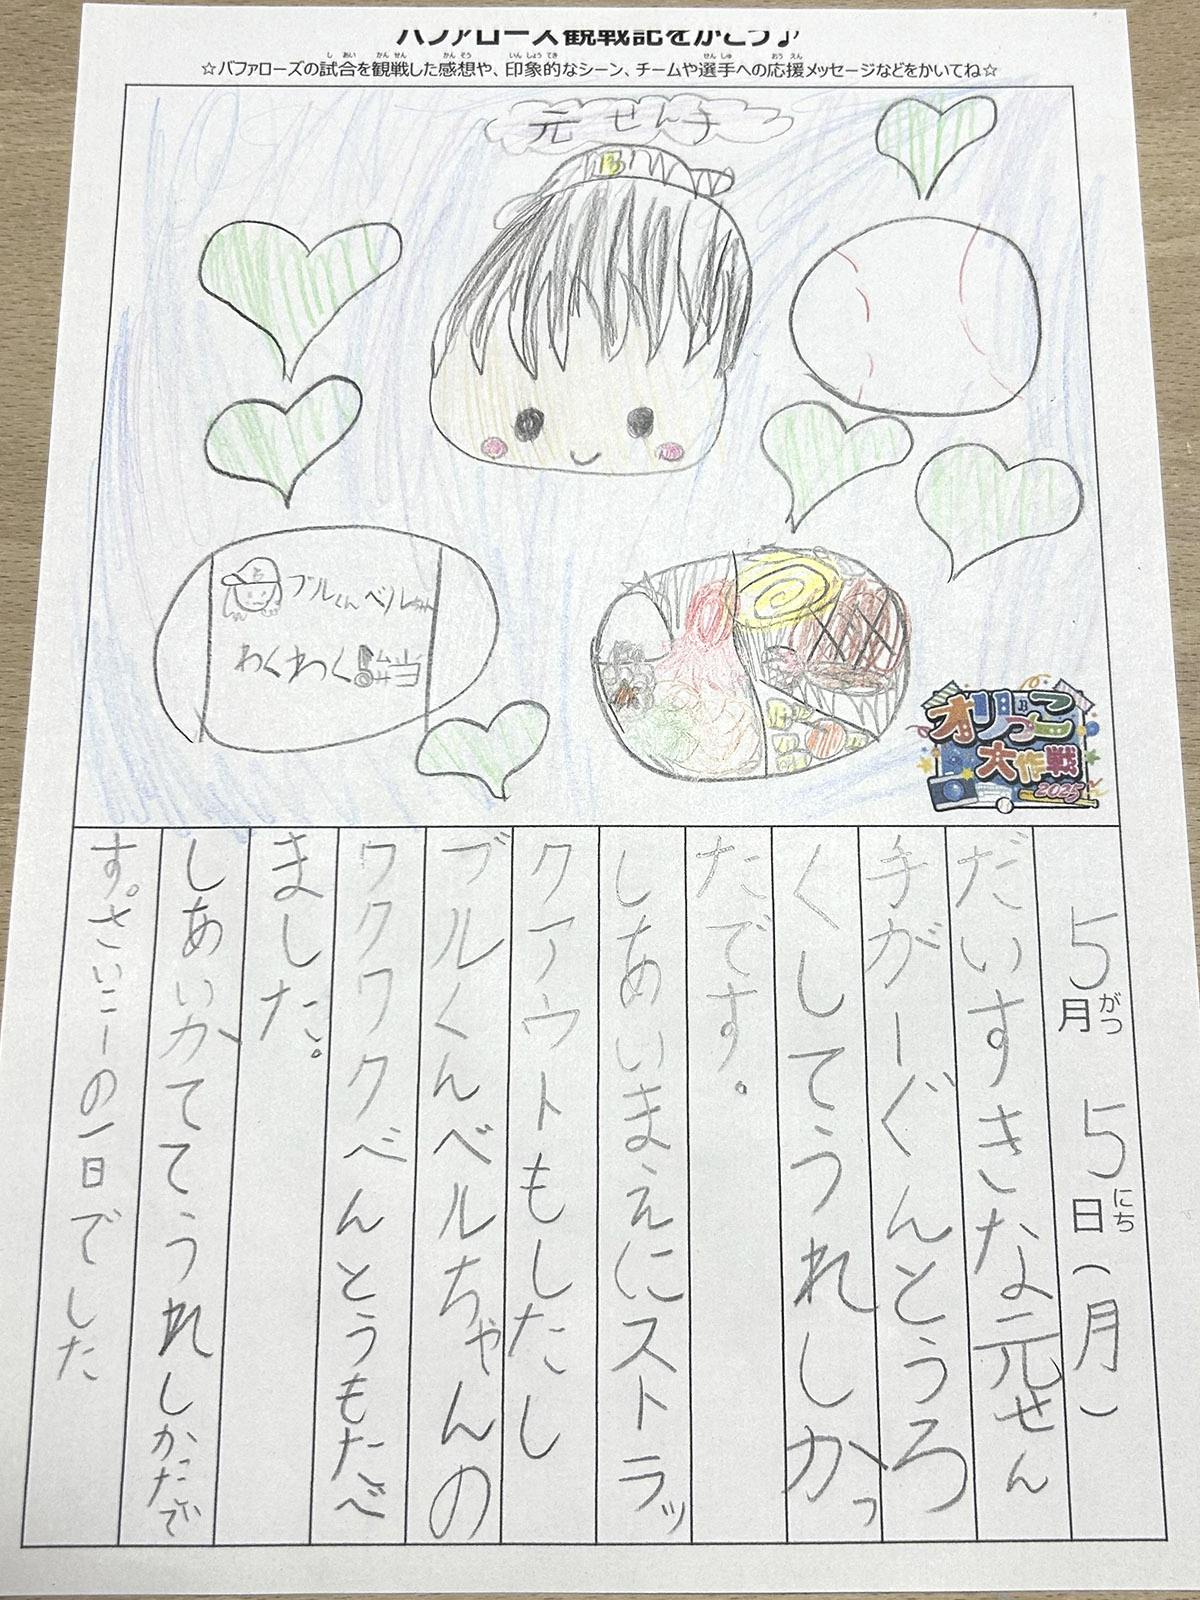 バファローズ観戦記をかこう♪
☆バファローズの試合を観戦した感想や、印象的なシーン、チームや選手への応援メッセージなどをかいてね☆
元せん手
B
ブルくんベルちゃん
わくわく弁当
オリっこ
大作戦
2025
5月5日(月)
だいすきな元せん
手がーぐんとうろ
くしてうれしかっ
たです。
しあいまえにストラッ
クアウトもしたし
ブルくんベルちゃんの
ワクワクべんとうもたべ
ました。
しあいがてうれしかたで
す。さいこーの一日でした